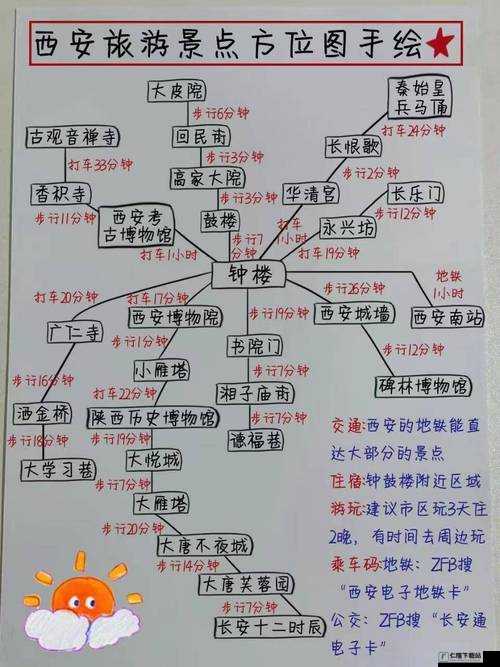 西安旅游景点方位图手绘
大皮院
步行6分钟
回民街
步行3分钟
高家大院
步行3分钟
鼓楼
步行7分钟
秦始皇
兵马俑
打车24分钟
长恨歌
步行2分钟
华清宫
打车
1小时
古观音禅寺
打车33分钟
香积寺
步行11分钟
西安考
古博物馆
打车1小时
长乐门
步行12分钟
永兴坊
打车19分钟
钟楼
地铁
1小时
西安南站
步行26分钟
西安城墙
步行12分钟
碑林博物馆
打车20分钟
广仁寺
步行16分钟
洒金桥
步行18分钟
大学习巷
打车17分钟
西安博物院
步行1分钟
小雁塔
打车22分钟
陕西历史博物馆
步行19分钟
大悦城
步行7分钟
大雁塔
步行20分钟
大唐不夜城
步行14分钟
大唐芙蓉园
步行7分钟
长安十二时辰
步行19分钟
书院门
步行7分钟
湘子庙街
步行7分钟
德福巷
交通:西安的地铁能直
达大部分的景点
住宿:钟鼓楼附近区域
游玩:建议市区玩3天住
2晚，有时间去周边玩
乘车码:地铁：ZFB搜
“西安电子地铁卡”
公交：ZFB搜“长安通
电子卡”
仁隆下载站